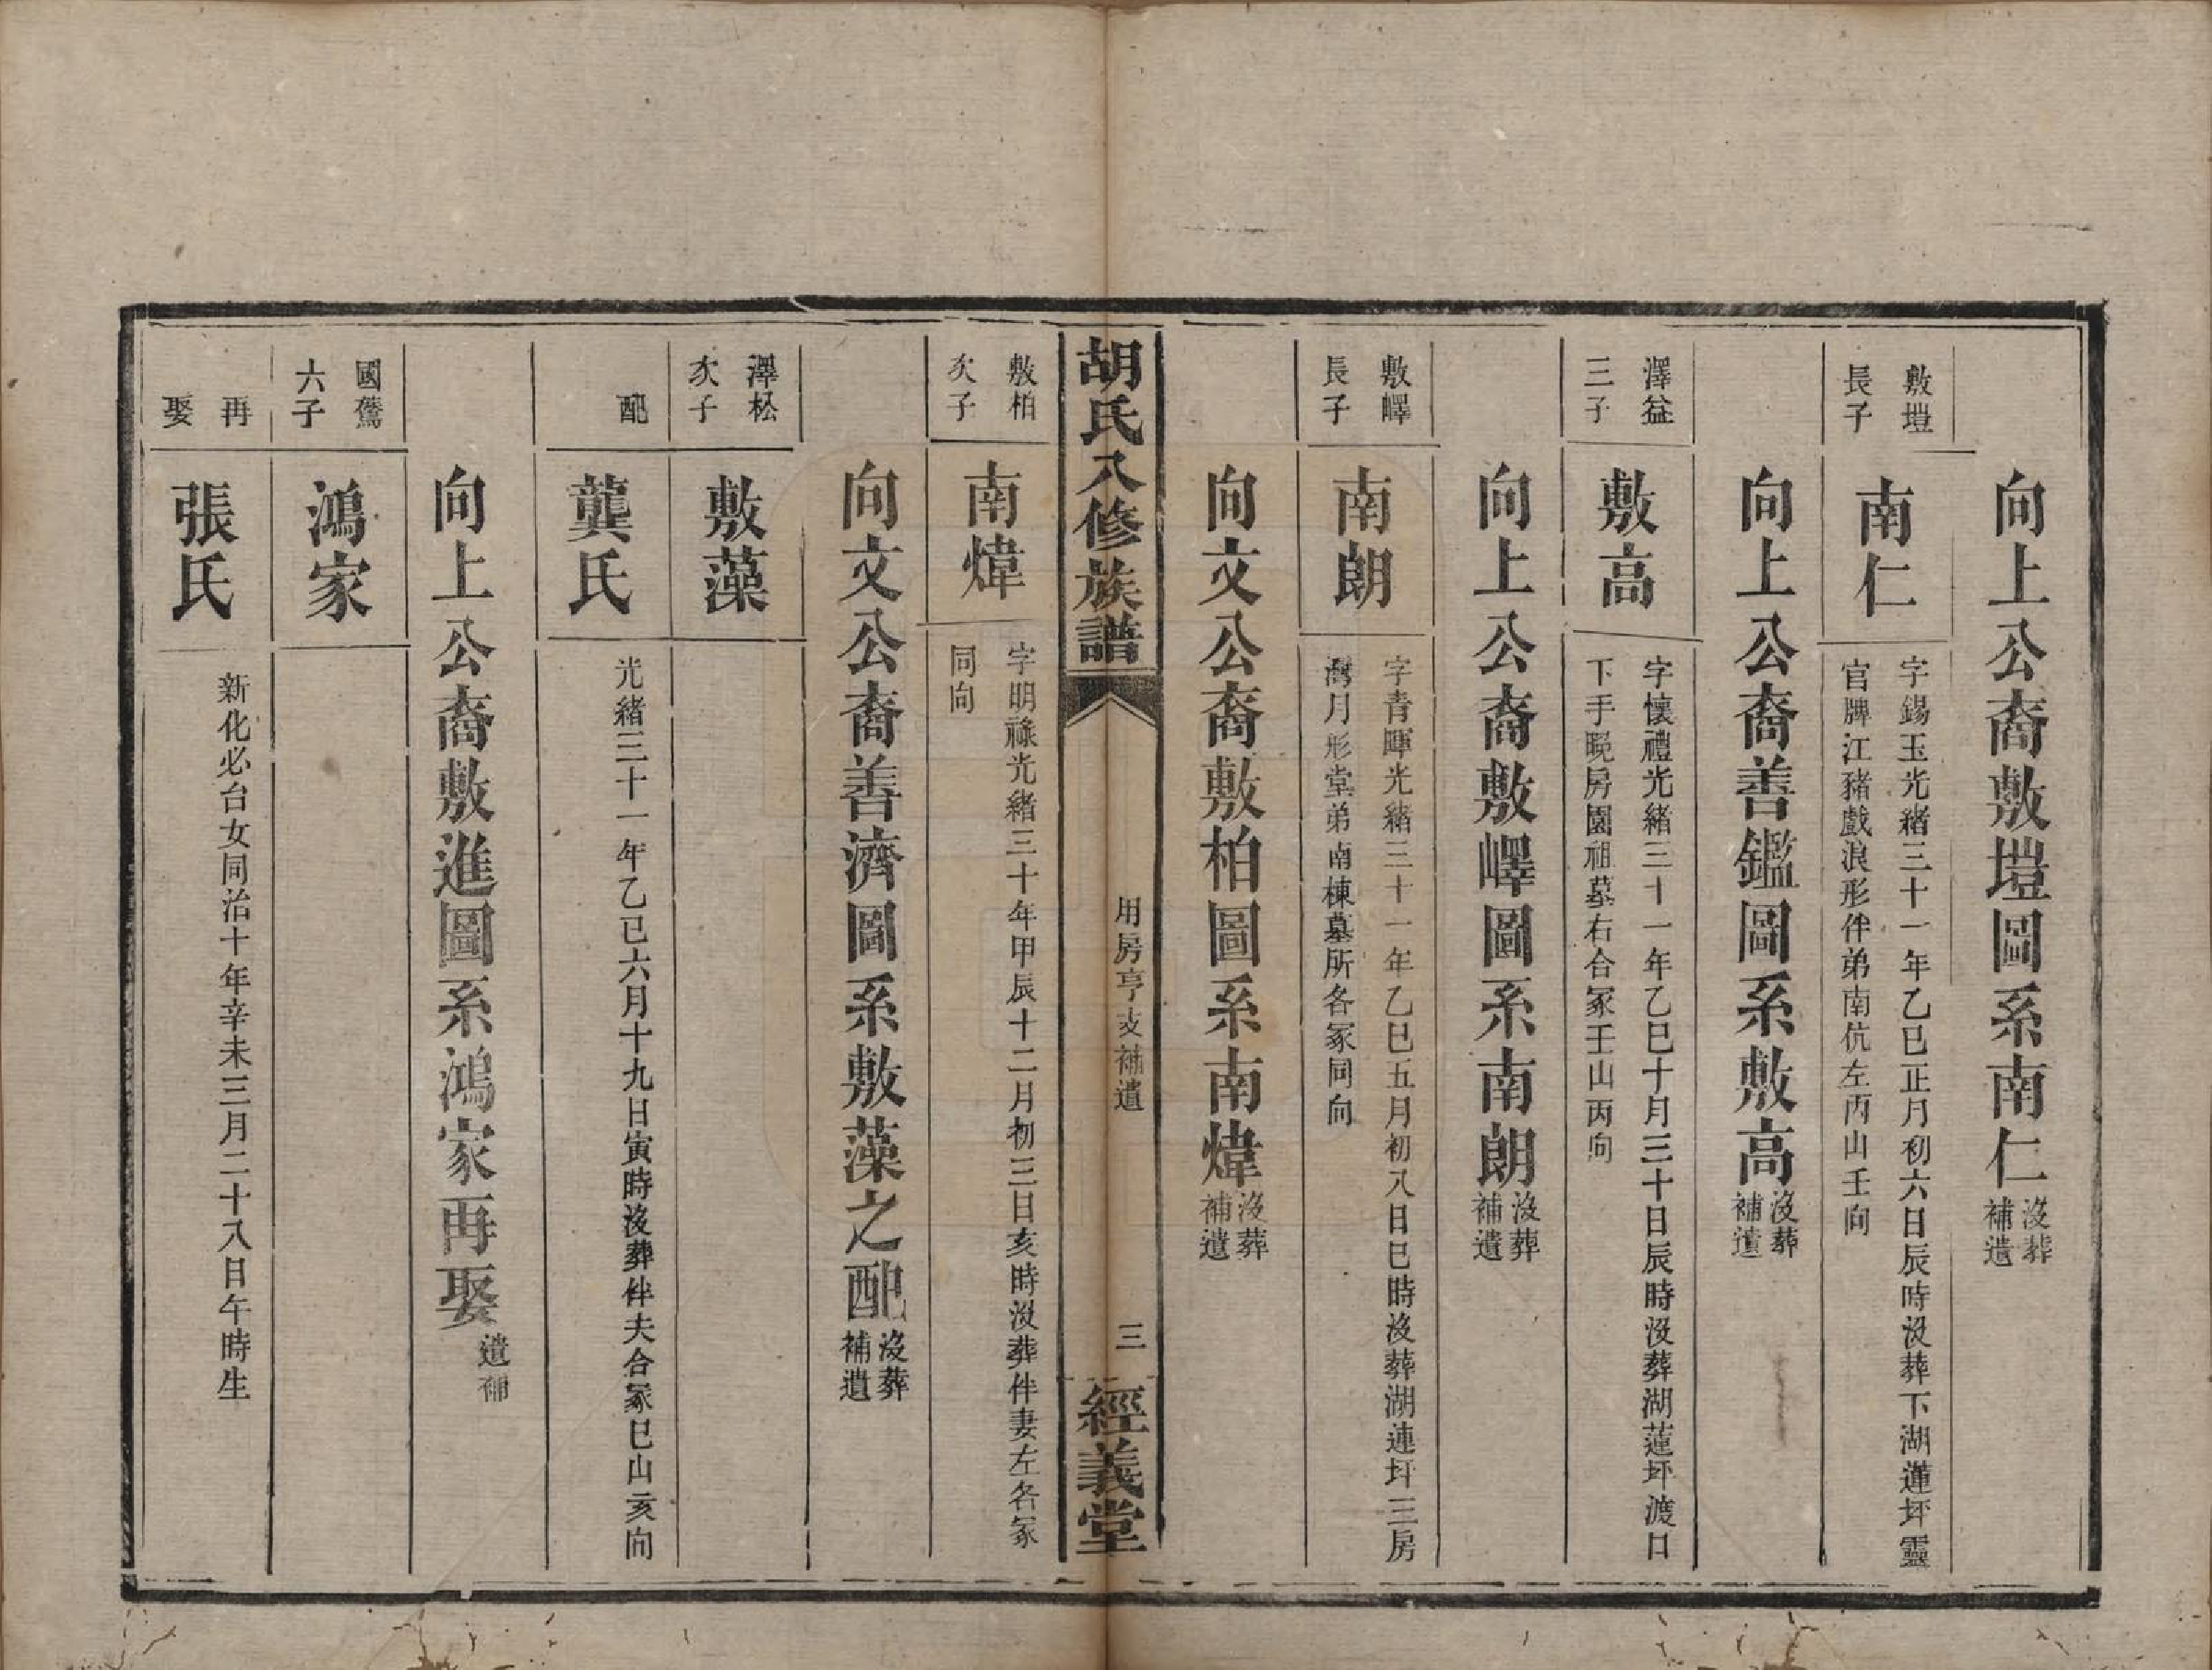 向上公裔敷塏圖系南仁
沒葬
補遺
敷塏
長子
南仁
字錫玉光緒三十一年乙巳正月初六日辰時沒葬下湖蓮坪靈
官牌江豬戲浪形伴弟南伉左丙山壬向
向上公裔善鑑圖系敷高
沒葬
補遺
澤益
三子
敷高
字懷禮光緒三十一年乙巳十月三十日辰時沒葬湖蓮坪渡口
下手晚房園祖墓右合冢壬山丙向
向上公裔敷嶧圖系南朗
沒葬
補遺
敷嶧
長子
南朗
字青暉光緒三十一年乙巳五月初八日巳時沒葬湖連坪三房
灣月形堂弟南棟墓所各冢同向
向文公裔敷柏圖系南煒
沒葬
補遺
胡氏八修族譜
用房亨支補遺
三
經義堂
敷柏
次子
南煒
字明祿光緒三十年甲辰十二月初三日亥時沒葬伴妻左各冢
同向
向文公裔善濟圖系敷藻之配
沒葬
補遺
澤松
次子
敷藻
配
龔氏
光緒三十一年乙巳六月十九日寅時沒葬伴夫合冢巳山亥向
向上公裔敷進圖系鴻家再娶
遺補
國鶱
六子
鴻家
再
娶
張氏
新化必台女同治十年辛未三月二十八日午時生